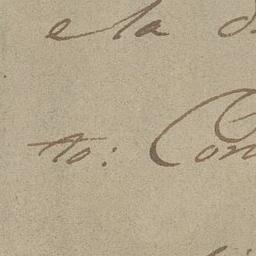 e la
to: Con